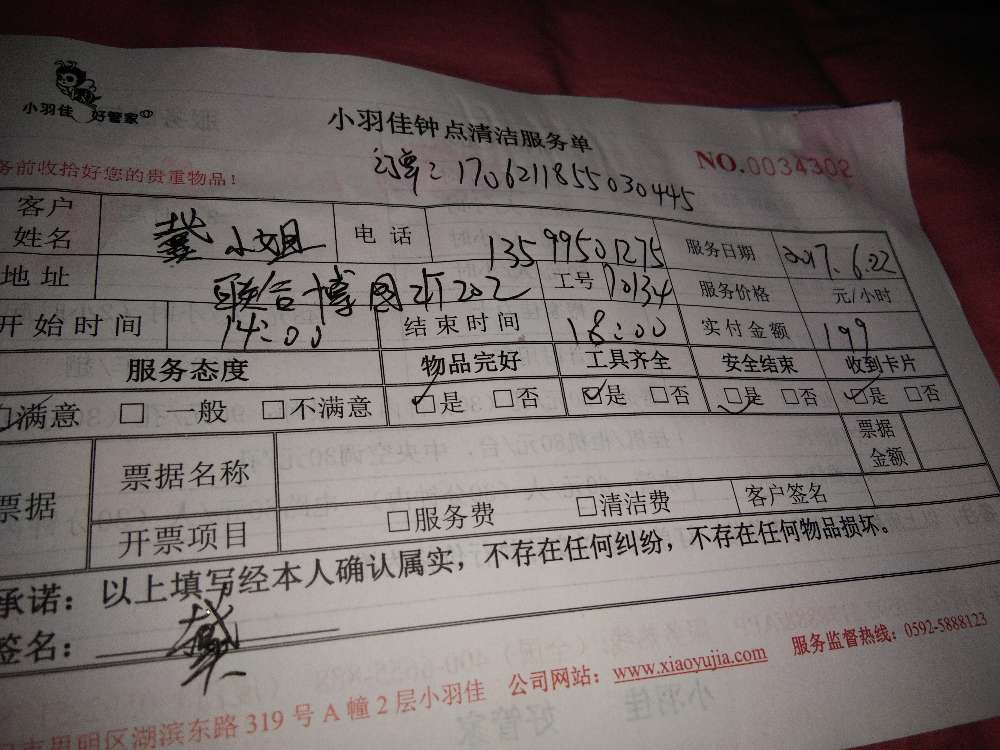 小羽佳 好管家
小羽佳钟点清洁服务单
务前收拾好您的贵重物品！
NO.0034302
17062118550300445
客户姓名 小姐 电话 13599501275 服务日期 2017.6.22
地址 联合博图 202 工号 70134 服务价格 元/小时
开始时间 14:00 结束时间 18:00 实付金额 199
服务态度 物品完好 工具齐全 安全结束 收到卡片
☑满意 □一般 □不满意 ☑是 □否 ☑是 □否 ☑是 □否 ☑是 □否
票据 票据名称 票据金额
开票项目 □服务费 □清洁费 客户签名
承诺：以上填写经本人确认属实，不存在任何纠纷，不存在任何物品损坏。
签名：
思明区湖滨东路319号A幢2层小羽佳 公司网站：www.xiaoyujia.com 服务监督热线：0592-5888123